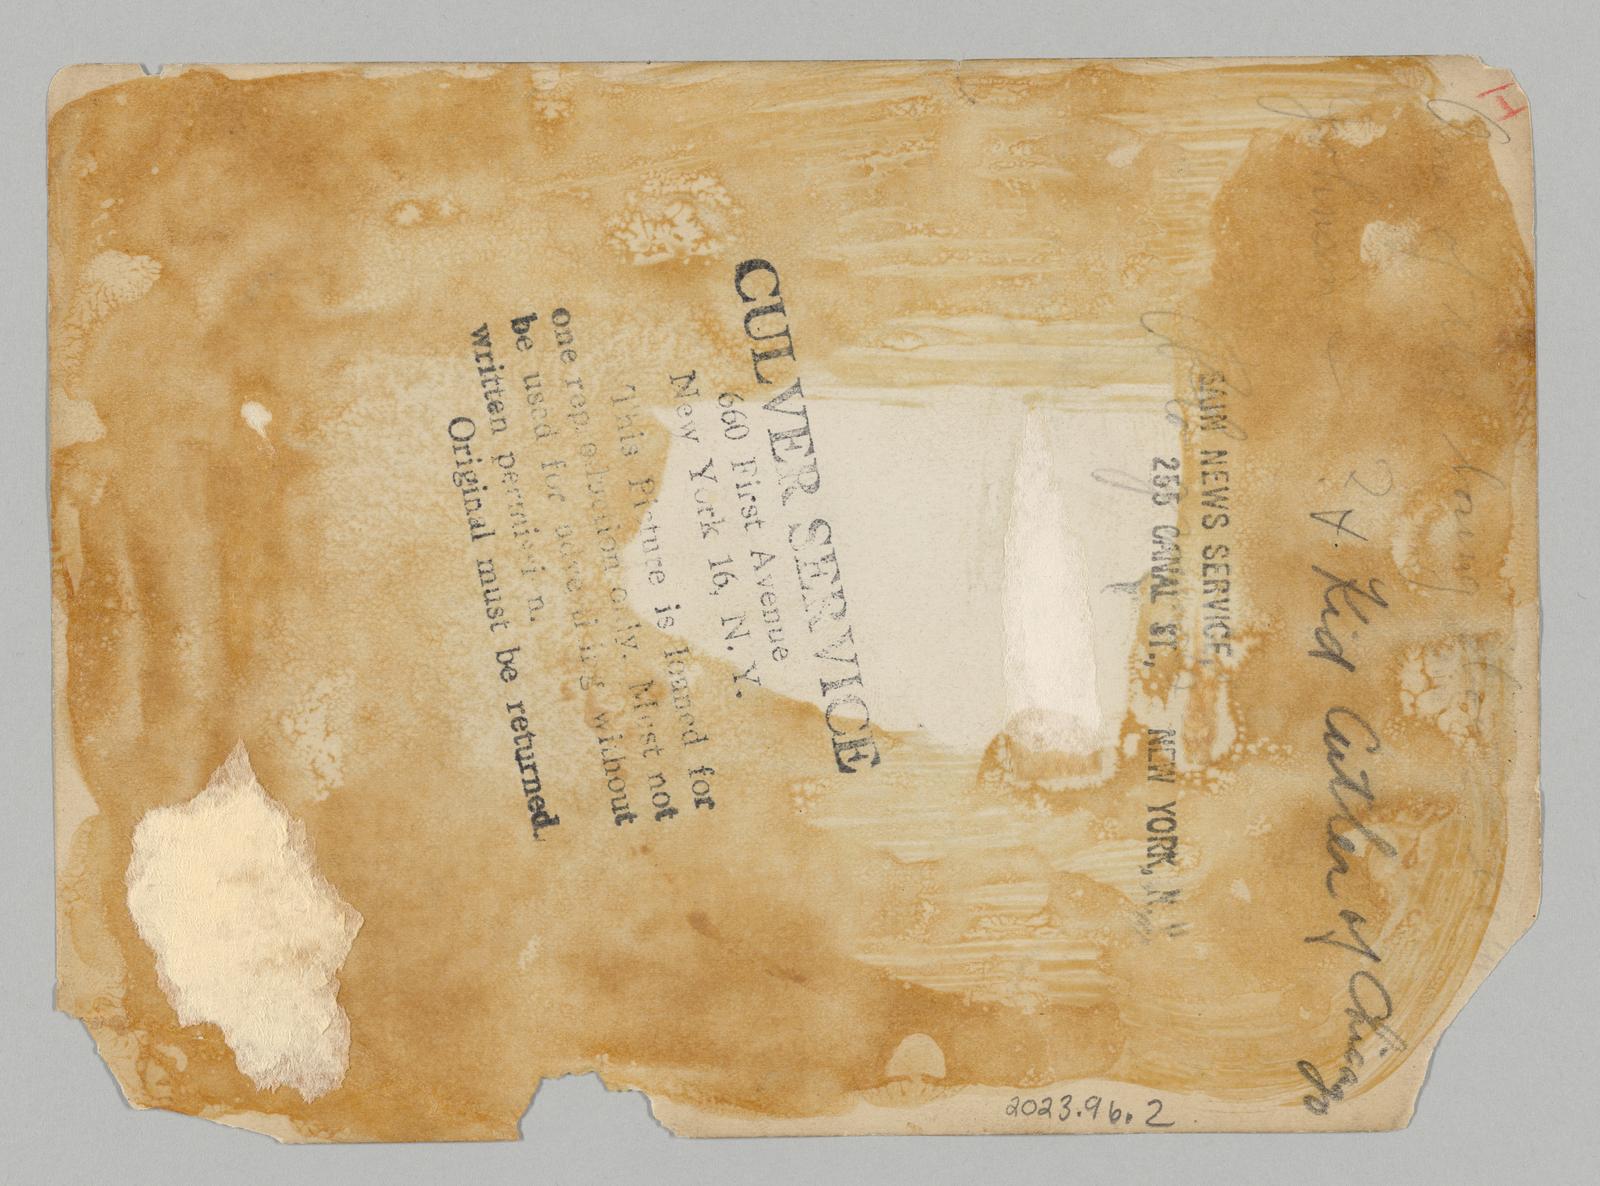 H
Johnson
2 H. Kid Cutler of Chicago
BAIN NEWS SERVICE,
255 CANAL ST., NEW YORK, N.
CULVER SERVICE
660 First Avenue
New York 16, N. Y.
This Picture is loaned for
one reproduction only. Must not
be used for advertising without
written permission.
Original must be returned.
2023.96.2